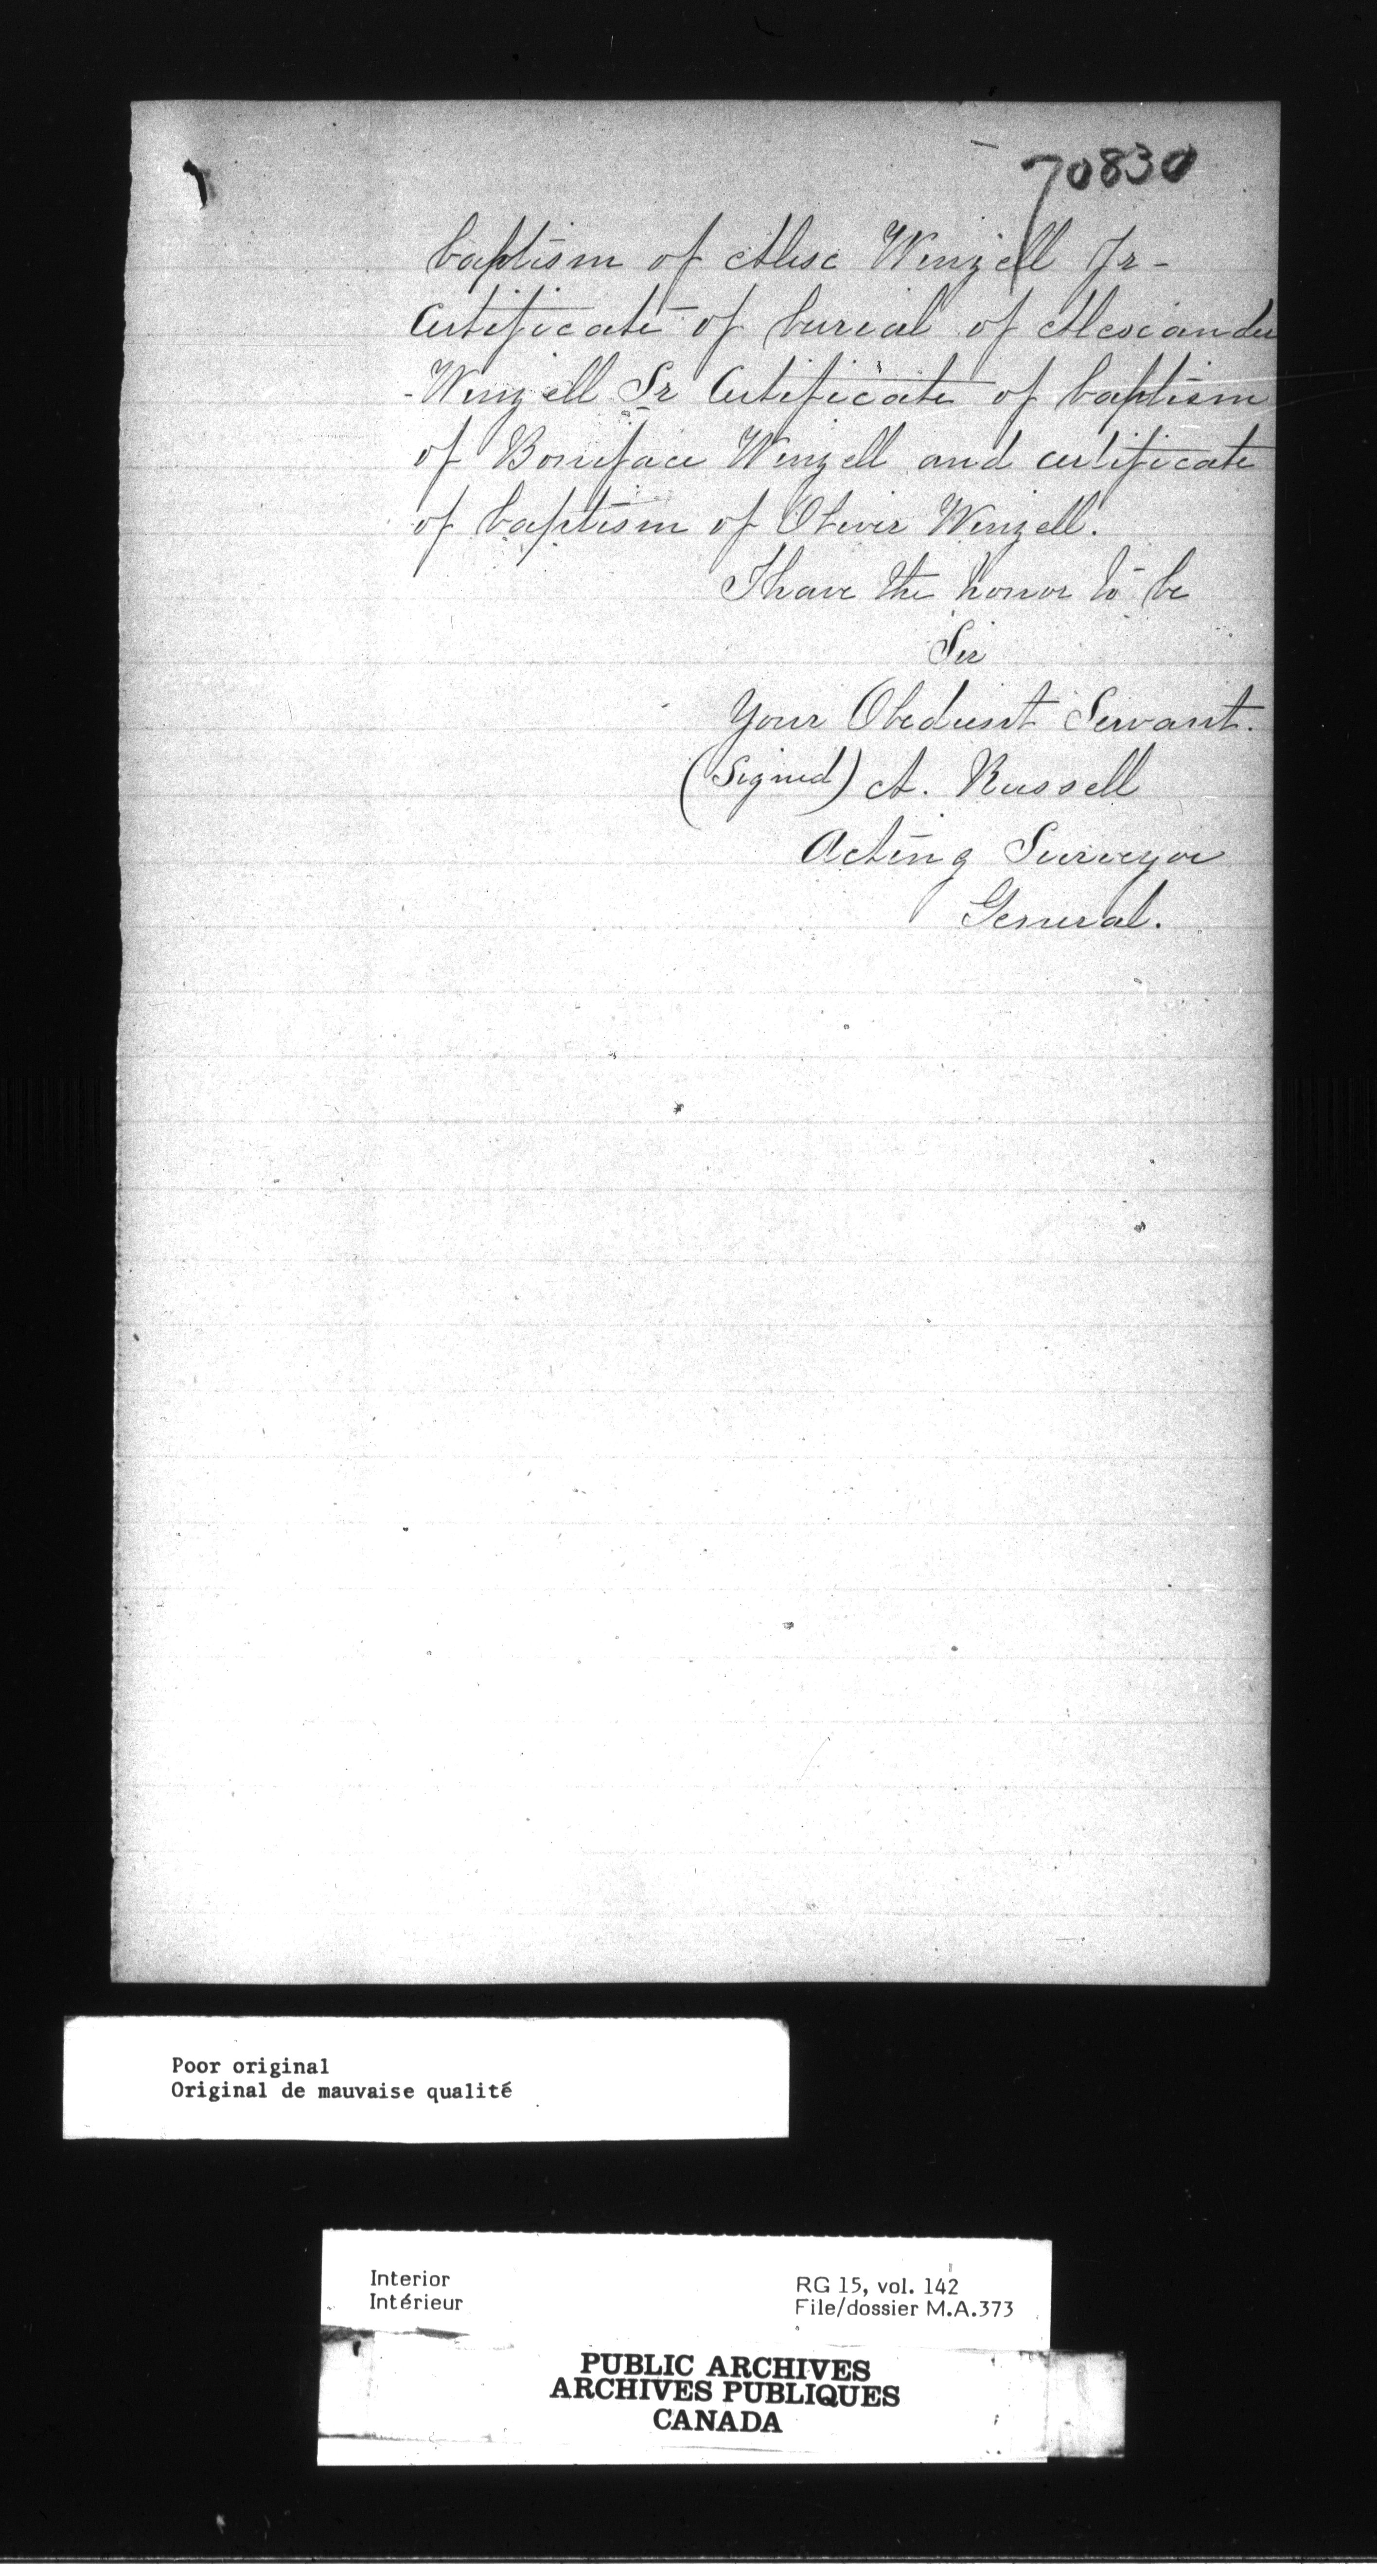 70830
baptism of Alex Wenzell Jr -
Certificate of burial of Alexander
- Wenzell Sr Certificate of baptism
of Boniface Wenzell and certificate
of baptism of Oliver Wenzell.
I have the honor to be
Sir
Your Obedient Servant.
(Signed) A. Russell
Acting Surveyor
General.
Poor original
Original de mauvaise qualité
Interior
Intérieur
RG 15, vol. 142
File/dossier M.A.373
PUBLIC ARCHIVES
ARCHIVES PUBLIQUES
CANADA